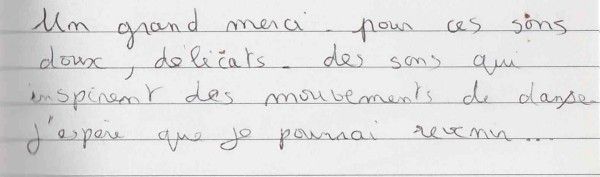 Un grand merci. pour ces sons
doux, délicats. des sons qui
inspirent des mouvements de danse
j'espère que je pourrai revenir...